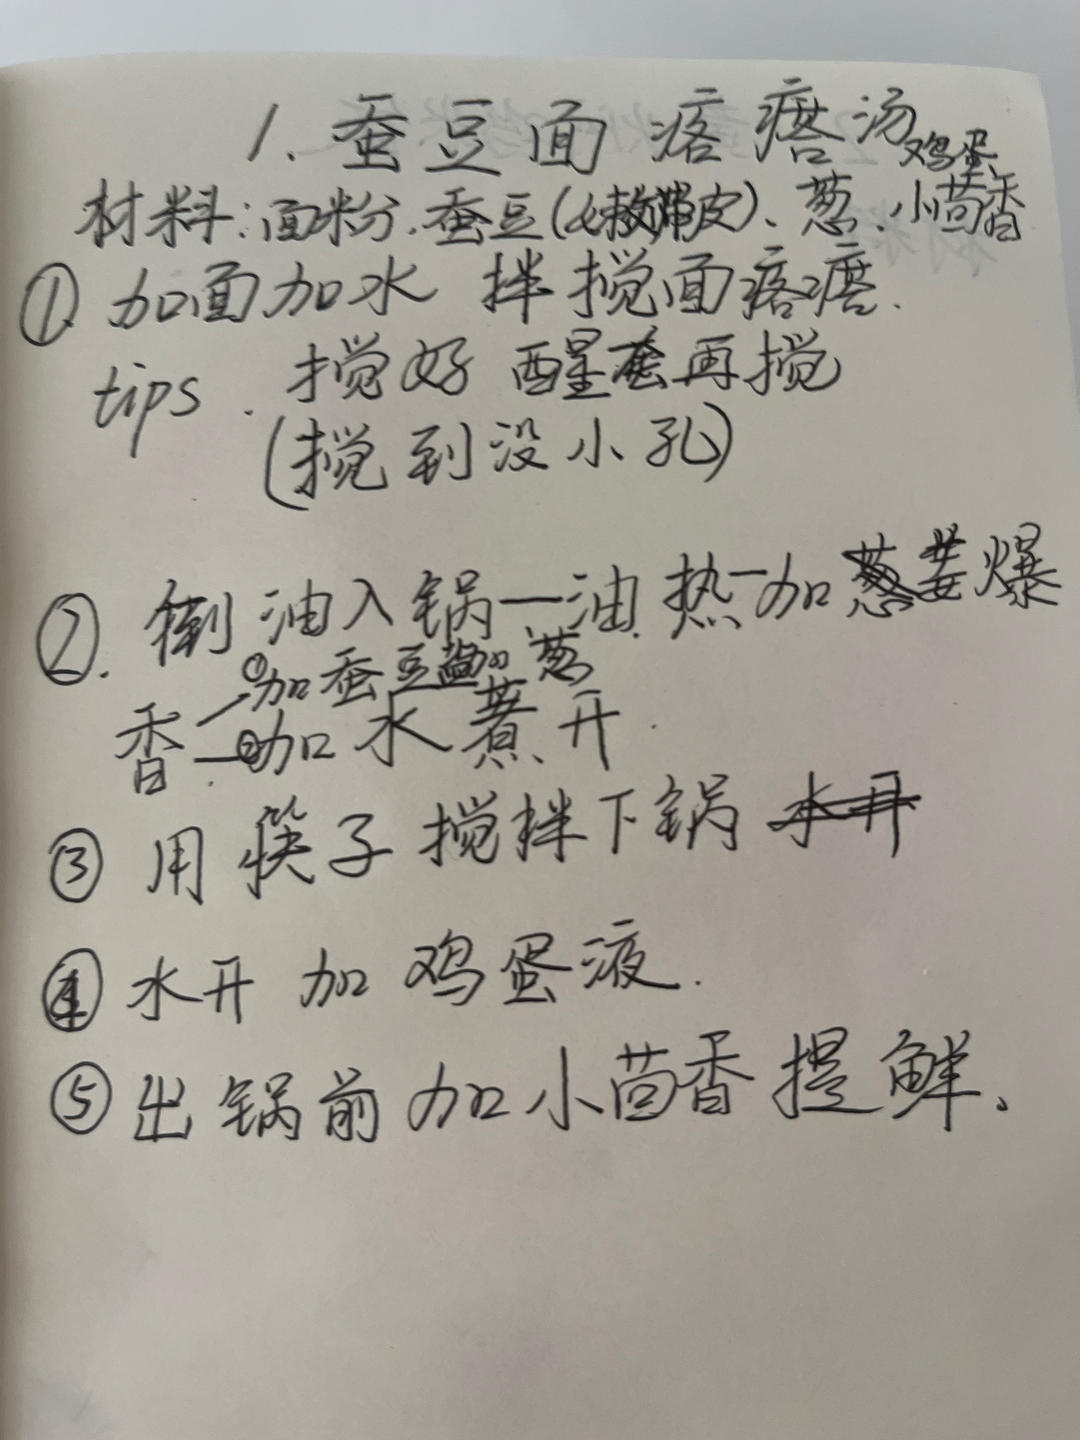 1. 蚕豆面疙瘩汤
鸡蛋、
材料:面粉.蚕豆(嫩带皮)、葱、小茴香
① 加面加水 拌搅面疙瘩.
tips. 搅好 醒 再搅
(搅到没小孔)
②. 倒油入锅—油热—加葱姜爆
①加蚕豆 加葱
香 ②加水煮开.
③ 用筷子搅拌下锅
④ 水开 加 鸡蛋液.
⑤ 出锅前 加小茴香提鲜、